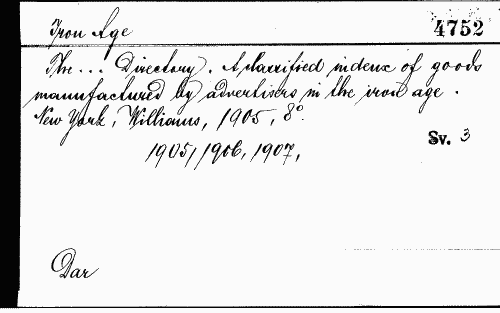 Iron Age
4752
The ... Directory. A classified indenx of goods
manufactured by advertisers in the iron age.
New York, Williams, 1905, 8°.
Sv. 3
1905, 1906, 1907,
Dar